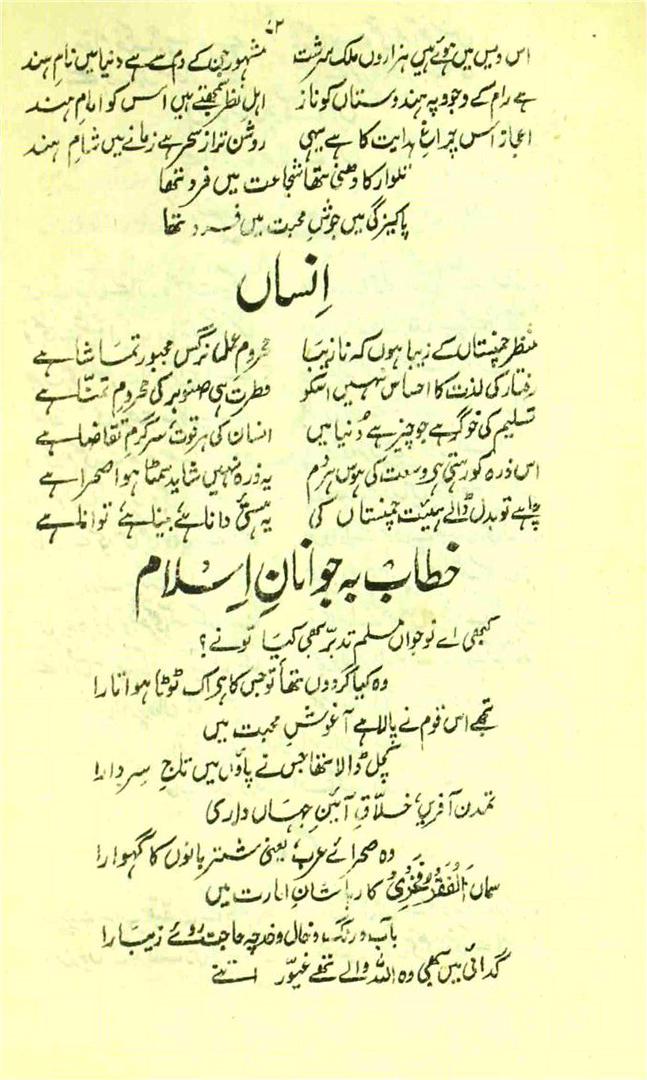 ۷۲
اس دیس میں ہوئے ہیں ہزاروں ملک سرشت مشہور جن کے دم سے ہے دنیا میں نام ہند
ہے رام کے وجود پہ ہندوستاں کو ناز اہل نظر سمجھتے ہیں اس کو امام ہند
اعجاز اس چراغِ ہدایت کا ہے یہی روشن تر از سحر ہے زمانے میں شام ہند
تلوار کا دھنی تھا شجاعت میں فرد تھا
پاکیزگی میں جوشِ محبت میں فرد تھا
اِنساں
منظر چمنستاں کے زیبا ہوں کہ نازیبا محرومِ عمل نرگس مجبورِ تماشا ہے
رفتار کی لذت کا احساس نہیں اسکو فطرت ہی صنوبر کی محرومِ تمنّا ہے
تسلیم کی خوگر ہے جو چیز ہے دُنیا میں انسان کی ہر قوت، سرگرمِ تقاضا ہے
اس ذرہ کو رہتی ہی وسعت کی ہوس ہر دم یہ ذرہ نہیں شاید سمٹا ہوا صحرا ہے
چاہے تو بدل ڈالے ہیئت چمنستاں کی یہ ہستیٔ دانا ہے بینا ہے توانا ہے
خطاب بہ جوانانِ اِسلام
کبھی اے نوجواں مسلم تدبّر بھی کیا تونے؟
وہ کیا گردوں تھا تو جس کا ہر اک ٹوٹا ہوا تارا
تجھے اس قوم نے پالا ہے آغوشِ محبت میں
کچل ڈالا تھا جس نے پاؤں میں تاجِ سرِ دارا
تمدن آفریں، خلّاقِ آئینِ جہاں داری
وہ صحرائے عرب، یعنی شتر بانوں کا گہوارا
سماں اَلْفَقْرُ فَخْرِیْ کا رہا شانِ امارت میں
بآب و رنگ و خال و خط چہ حاجت روئے زیبا را
گدائی میں بھی وہ اللہ والے تھے غیّور اتنے